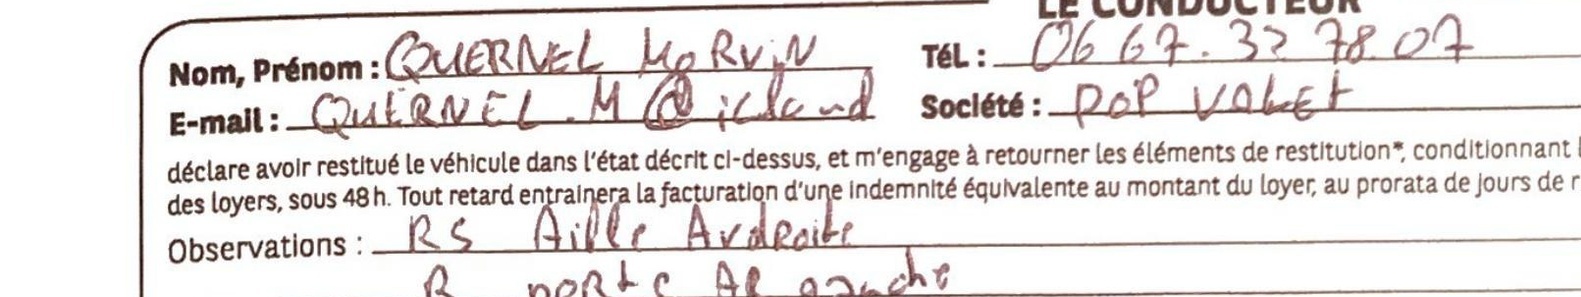 LE CONDUCTEUR
Nom, Prénom : QUERNEL MORViN Tél. : 06 67. 32 78. 07
E-mail : QUERNEL .M @icloud Société : POP VALET
déclare avoir restitué le véhicule dans l'état décrit ci-dessus, et m'engage à retourner les éléments de restitution*, conditionnant
des loyers, sous 48 h. Tout retard entrainera la facturation d'une indemnité équivalente au montant du loyer, au prorata de jours de r
Observations : RS Aille Avdroite
R porte AR gauche